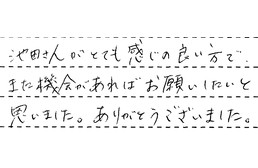 池田さんがとても感じの良い方で、
また機会があればお願いしたいと
思いました。ありがとうございました。